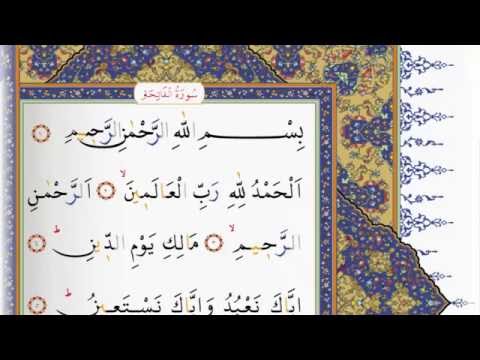 سُورَةُ الْفَاتِحَةِ
بِسْمِ اللّٰهِ الرَّحْمٰنِ الرَّح۪يمِ
اَلْحَمْدُ لِلّٰهِ رَبِّ الْعَالَم۪ينَۙ اَلرَّحْمٰنِ
الرَّح۪يمِۙ مَالِكِ يَوْمِ الدّ۪ينِۜ
اِيَّاكَ نَعْبُدُ وَاِيَّاكَ نَسْتَع۪ينُۜ